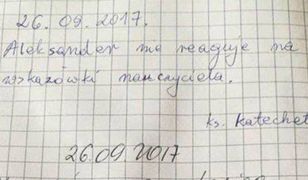 26.09.2017.
Aleksander nie reaguje na
wskazówki nauczyciela.
ks. katechet
26.09.2017